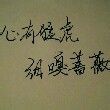 心有猛虎
细嗅蔷薇